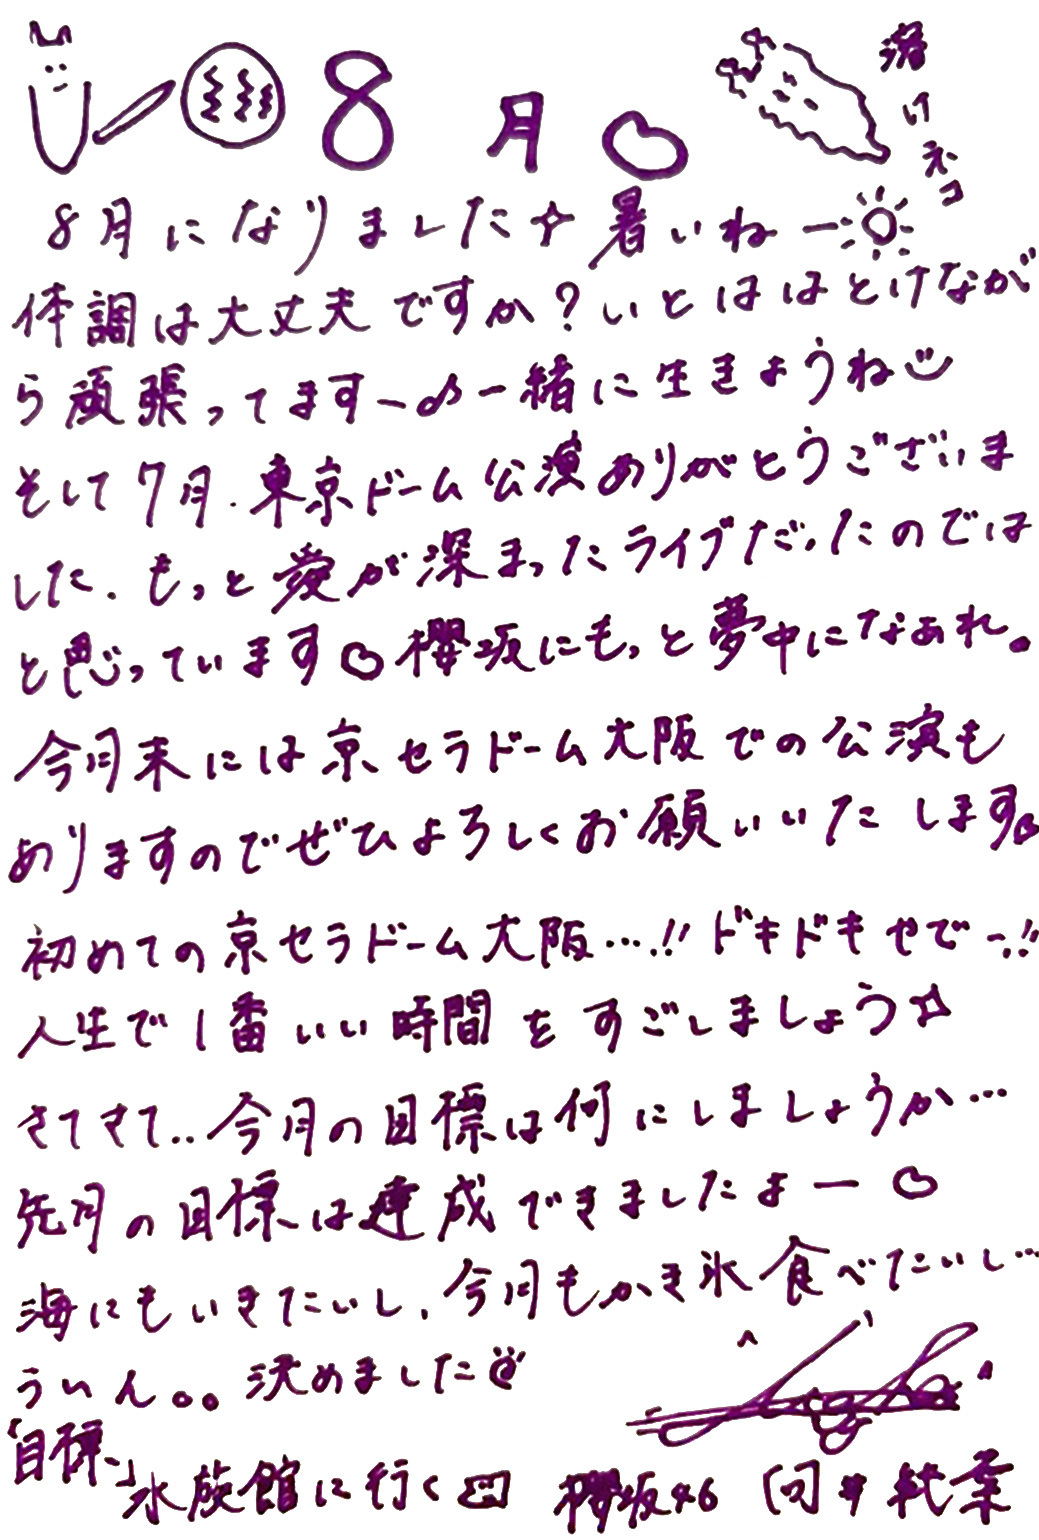 8月
溶けネコ
8月になりました☆暑いねー
体調は大丈夫ですか?いとははとけなが
ら頑張ってます〜♪一緒に生きようね
そして7月.東京ドーム公演ありがとうございま
した.もっと愛が深まったライブだったのでは
と思っています 櫻坂にもっと夢中になぁれ。
今月末には京セラドーム大阪での公演も
ありますのでぜひよろしくお願いいたします
初めての京セラドーム大阪...!!ドキドキやでー!!
人生で1番いい時間をすごしましょう☆
さてさて..今月の目標は何にしましょうか...
先月の目標は達成できましたよー
海にもいきたいし,今月もかき氷食べたいし...
ういん。。決めました
「目標」水族館に行く 櫻坂46 向井純葉